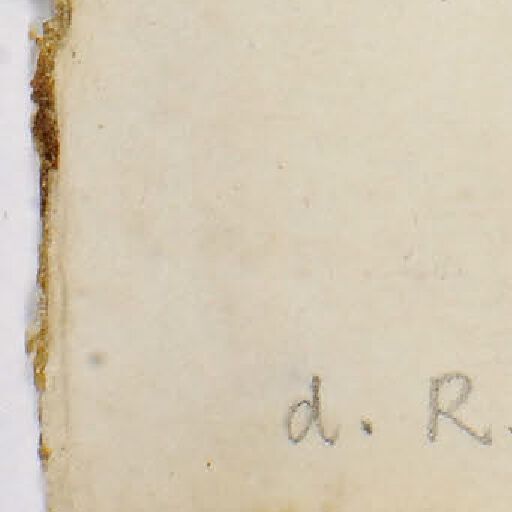 d. R.